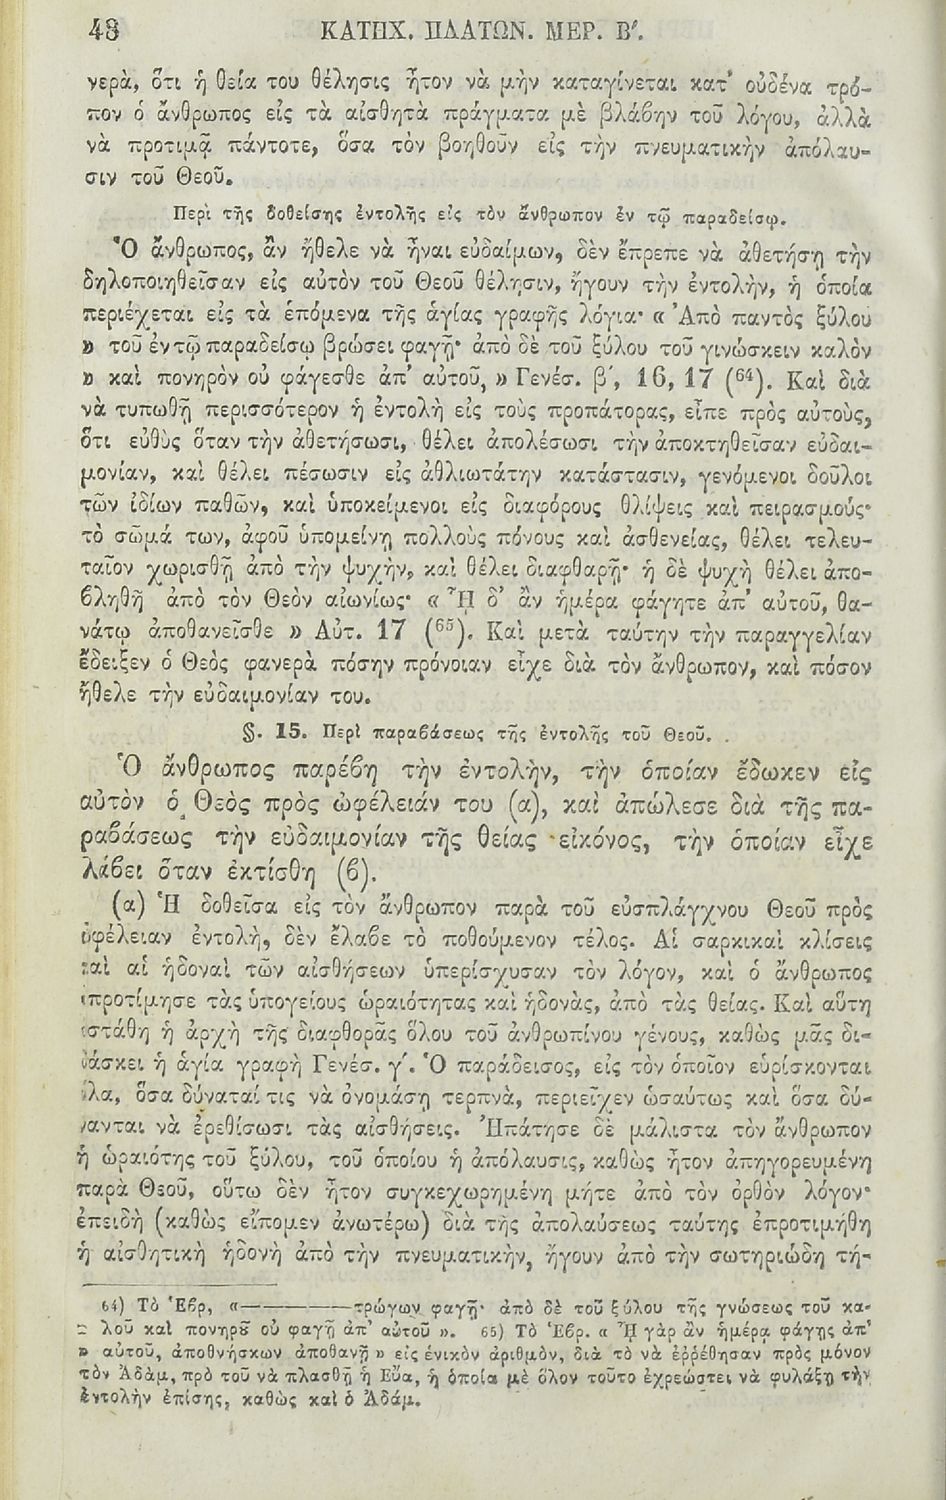 48 ΚΑΤΗΧ. ΠΛΑΤΩΝ. ΜΕΡ. Β'.
νερὰ, ὅτι ἡ θεία του θέλησις ἦτον νὰ μὴν καταγίνεται κατ' οὐδένα τρό-
πον ὁ ἄνθρωπος εἰς τὰ αἰσθητὰ πράγματα μὲ βλάβην τοῦ λόγου, ἀλλὰ
νὰ προτιμᾷ πάντοτε, ὅσα τὸν βοηθοῦν εἰς τὴν πνευματικὴν ἀπόλαυ-
σιν τοῦ Θεοῦ.
Περὶ τῆς δοθείσης ἐντολῆς εἰς τὸν ἄνθρωπον ἐν τῷ παραδείσῳ.
Ὁ ἄνθρωπος, ἂν ἤθελε νὰ ἦναι εὐδαίμων, δὲν ἔπρεπε νὰ ἀθετήσῃ τὴν
δηλοποιηθεῖσαν εἰς αὐτὸν τοῦ Θεοῦ θέλησιν, ἤγουν τὴν ἐντολὴν, ἡ ὁποία
περιέχεται εἰς τὰ ἑπόμενα τῆς ἁγίας γραφῆς λόγια· « Ἀπὸ παντὸς ξύλου
» τοῦ ἐν τῷ παραδείσῳ βρώσει φαγῇ· ἀπὸ δὲ τοῦ ξύλου τοῦ γινώσκειν καλὸν
» καὶ πονηρὸν οὐ φάγεσθε ἀπ' αὐτοῦ, » Γενέσ. β', 16, 17 (64). Καὶ διὰ
νὰ τυπωθῇ περισσότερον ἡ ἐντολὴ εἰς τοὺς προπάτορας, εἶπε πρὸς αὐτοὺς,
ὅτι εὐθὺς ὅταν τὴν ἀθετήσωσι, θέλει ἀπολέσωσι τὴν ἀποκτηθεῖσαν εὐδαι-
μονίαν, καὶ θέλει πέσωσιν εἰς ἀθλιωτάτην κατάστασιν, γενόμενοι δοῦλοι
τῶν ἰδίων παθῶν, καὶ ὑποκείμενοι εἰς διαφόρους θλίψεις καὶ πειρασμούς·
τὸ σῶμά των, ἀφοῦ ὑπομείνῃ πολλοὺς πόνους καὶ ἀσθενείας, θέλει τελευ-
ταῖον χωρισθῇ ἀπὸ τὴν ψυχὴν, καὶ θέλει διαφθαρῇ· ἡ δὲ ψυχὴ θέλει ἀπο-
βληθῇ ἀπὸ τὸν Θεὸν αἰωνίως· « ᾟ δ' ἂν ἡμέρα φάγητε ἀπ' αὐτοῦ, θα-
νάτῳ ἀποθανεῖσθε » Αὐτ. 17 (65). Καὶ μετὰ ταύτην τὴν παραγγελίαν
ἔδειξεν ὁ Θεὸς φανερὰ πόσην πρόνοιαν εἶχε διὰ τὸν ἄνθρωπον, καὶ πόσον
ἤθελε τὴν εὐδαιμονίαν του.
§. 15. Περὶ παραβάσεως τῆς ἐντολῆς τοῦ Θεοῦ.
Ὁ ἄνθρωπος παρέβη τὴν ἐντολὴν, τὴν ὁποίαν ἔδωκεν εἰς
αὐτὸν ὁ Θεὸς πρὸς ὠφέλειάν του (α), καὶ ἀπώλεσε διὰ τῆς πα-
ραβάσεως τὴν εὐδαιμονίαν τῆς θείας εἰκόνος, τὴν ὁποίαν εἶχε
λάβει ὅταν ἐκτίσθη (β).
(α) Ἡ δοθεῖσα εἰς τὸν ἄνθρωπον παρὰ τοῦ εὐσπλάγχνου Θεοῦ πρὸς
ὠφέλειαν ἐντολὴ, δὲν ἔλαβε τὸ ποθούμενον τέλος. Αἱ σαρκικαὶ κλίσεις
καὶ αἱ ἡδοναὶ τῶν αἰσθήσεων ὑπερίσχυσαν τὸν λόγον, καὶ ὁ ἄνθρωπος
προτίμησε τὰς ὑπογείους ὡραιότητας καὶ ἡδονὰς, ἀπὸ τὰς θείας. Καὶ αὕτη
ἐστάθη ἡ ἀρχὴ τῆς διαφθορᾶς ὅλου τοῦ ἀνθρωπίνου γένους, καθὼς μᾶς δι-
δάσκει ἡ ἁγία γραφὴ Γενέσ. γ'. Ὁ παράδεισος, εἰς τὸν ὁποῖον εὑρίσκονται
ὅλα, ὅσα δύναταί τις νὰ ὀνομάσῃ τερπνὰ, περιεῖχεν ὡσαύτως καὶ ὅσα δύ-
νανται νὰ ἐρεθίσωσι τὰς αἰσθήσεις. Ἠπάτησε δὲ μάλιστα τὸν ἄνθρωπον
ἡ ὡραιότης τοῦ ξύλου, τοῦ ὁποίου ἡ ἀπόλαυσις, καθὼς ἦτον ἀπηγορευμένη
παρὰ Θεοῦ, οὕτω δὲν ἦτον συγκεχωρημένη μήτε ἀπὸ τὸν ὀρθὸν λόγον·
ἐπειδὴ (καθὼς εἴπομεν ἀνωτέρω) διὰ τῆς ἀπολαύσεως ταύτης ἐπροτιμήθη
ἡ αἰσθητικὴ ἡδονὴ ἀπὸ τὴν πνευματικὴν, ἤγουν ἀπὸ τὴν σωτηριώδη τή-
64) Τὸ Ἑβρ, « ————— τρώγων φαγῇ· ἀπὸ δὲ τοῦ ξύλου τῆς γνώσεως τοῦ κα-
λοῦ καὶ πονηρȣ οὐ φαγῇ ἀπ' αὐτοῦ ». 65) Τὸ Ἑβρ. « ᾟ γὰρ ἂν ἡμέρᾳ φάγῃς ἀπ'
» αὐτοῦ, ἀποθνήσκων ἀποθανῇ » εἰς ἑνικὸν ἀριθμὸν, διὰ τὸ νὰ ἐῤῥέθησαν πρὸς μόνον
τὸν Ἀδὰμ, πρὸ τοῦ νὰ πλασθῇ ἡ Εὔα, ἡ ὁποία μὲ ὅλον τοῦτο ἐχρεώστει νὰ φυλάξῃ τὴν
ἐντολὴν ἐπίσης, καθὼς καὶ ὁ Ἀδάμ.